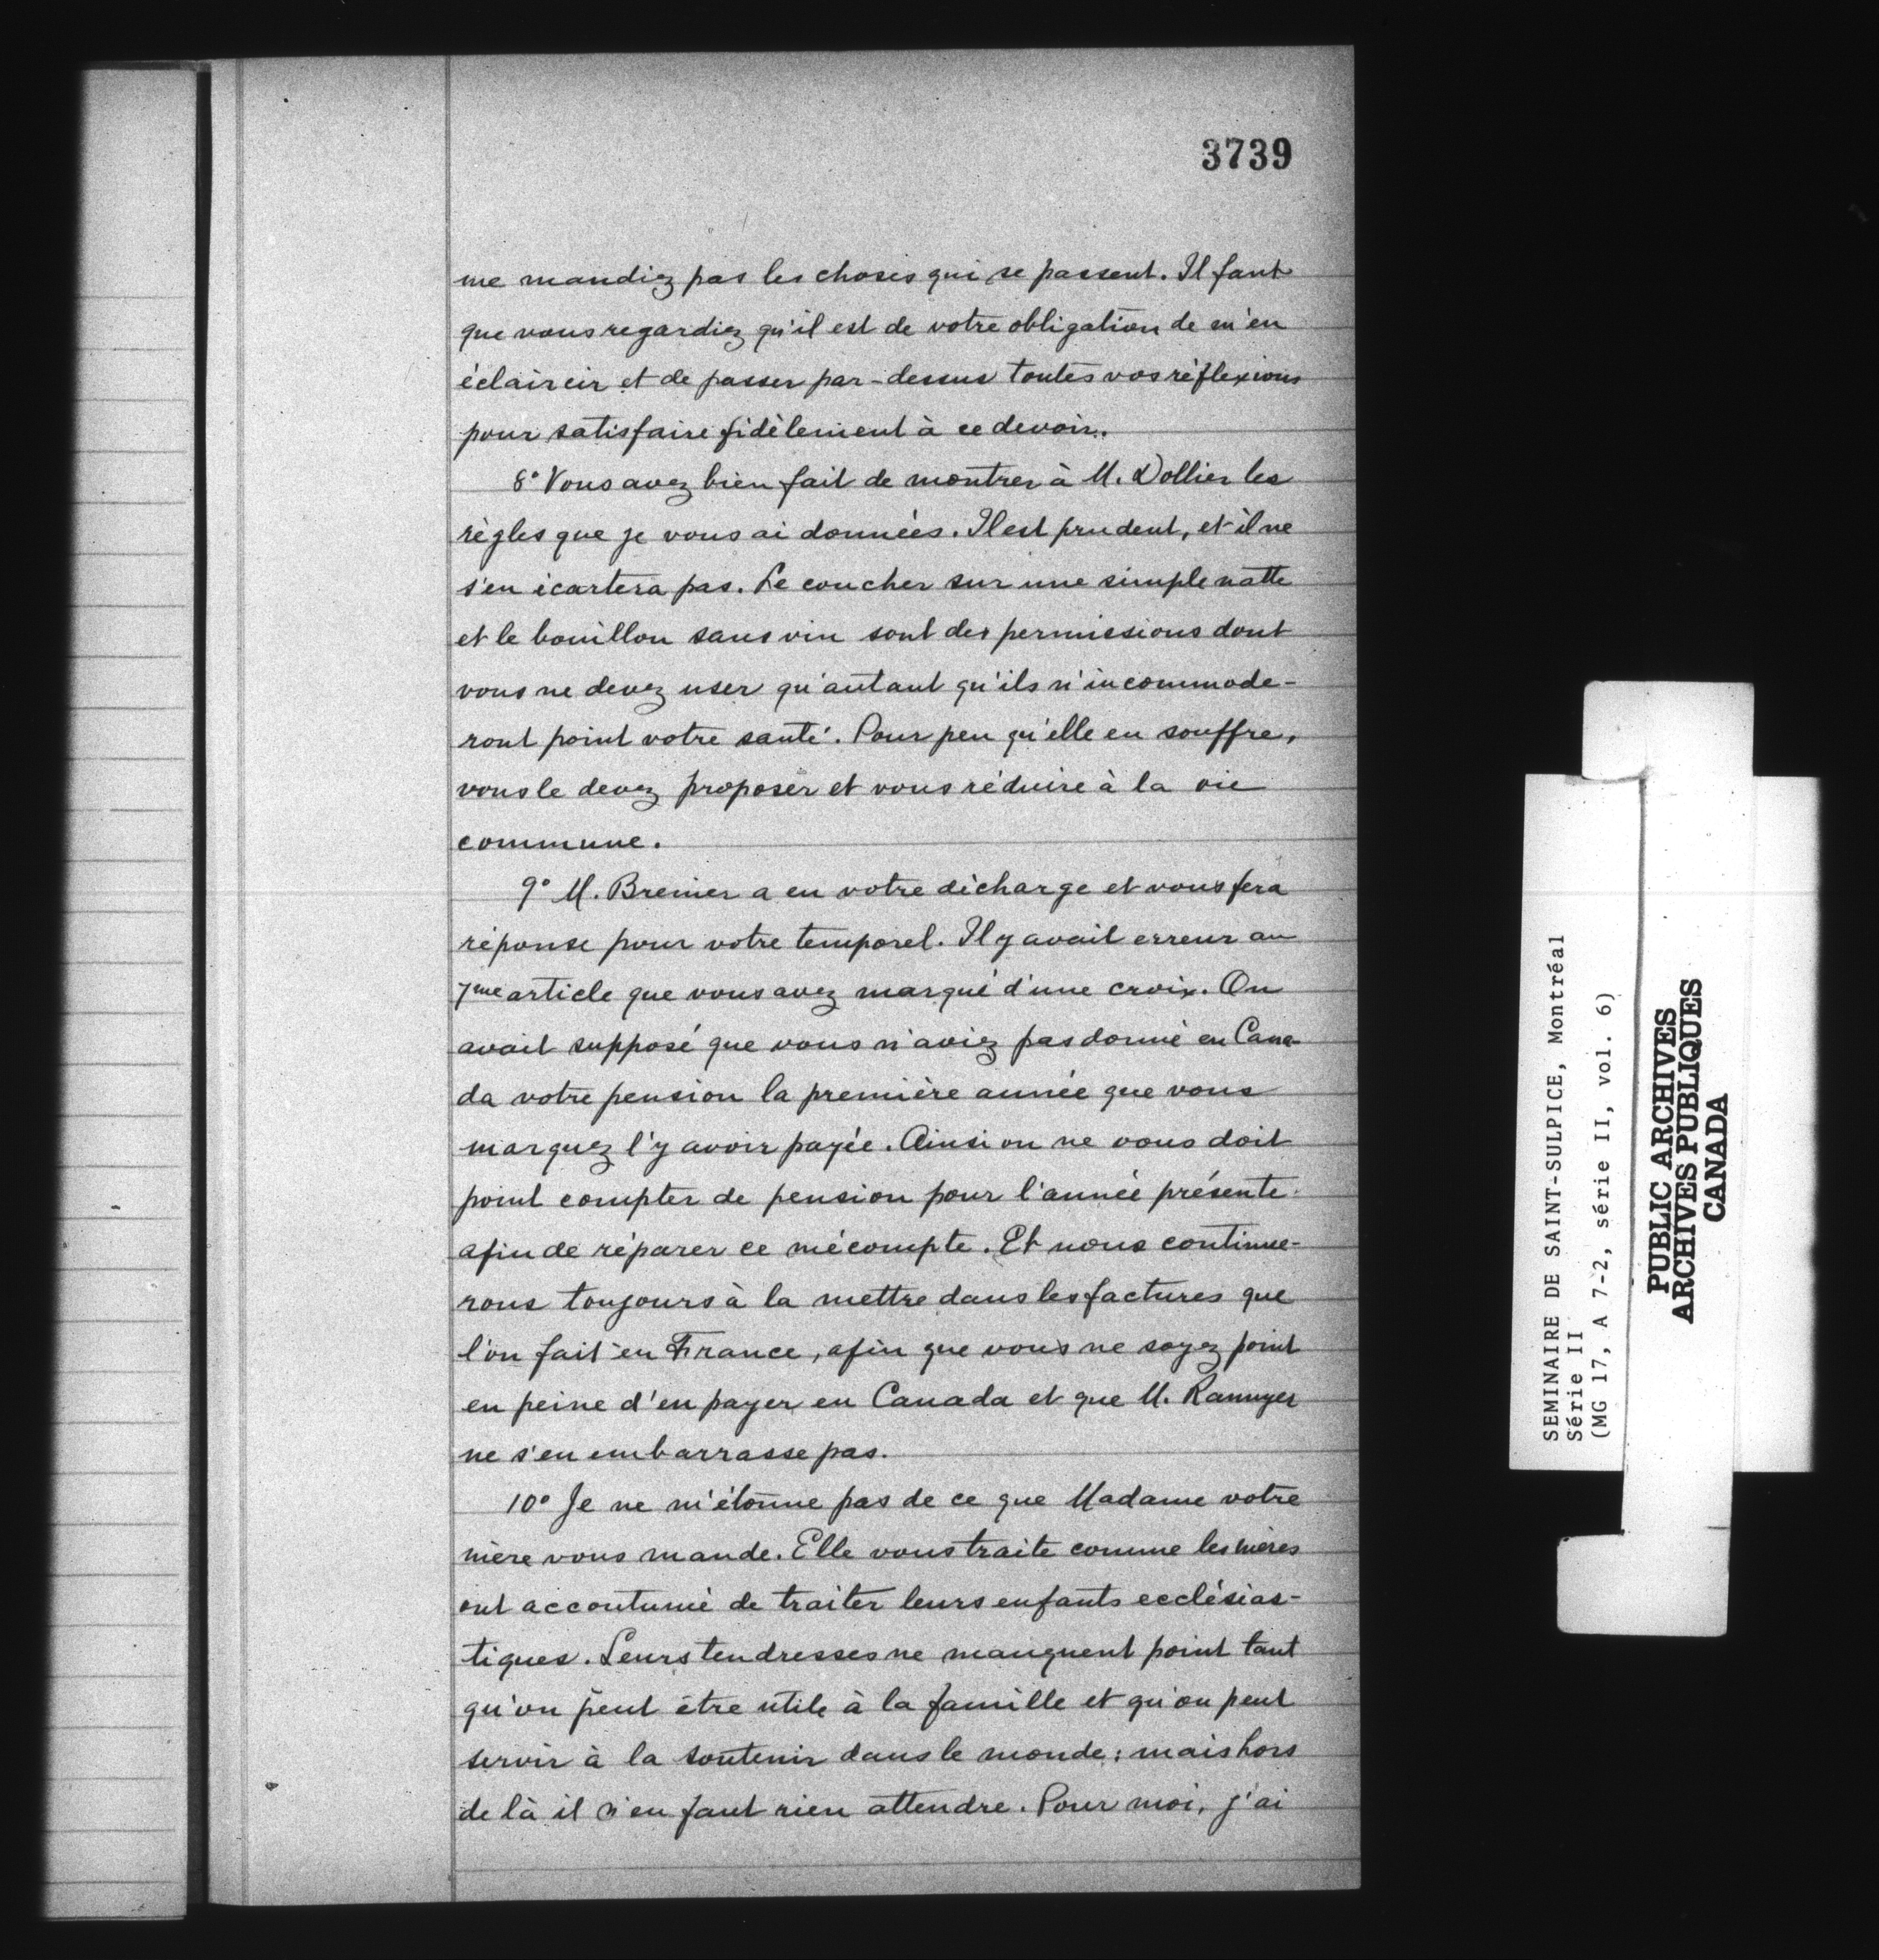 3739
me mandiez pas les choses qui se passent. Il faut
que vous regardiez qu'il est de votre obligation de m'en
éclaircir et de passer par-dessus toutes vos réflexions
pour satisfaire fidèlement à ce devoir.
8° Vous avez bien fait de montrer à M. Dollier les
règles que je vous ai données. Il est prudent, et il ne
s'en écartera pas. Le coucher sur une simple natte
et le bouillon sans vin sont des permissions dont
vous ne devez user qu'autant qu'ils n'incommode-
ront point votre santé. Pour peu qu'elle en souffre,
vous le devez proposer et vous réduire à la vie
commune.
9° M. Brenier a eu votre décharge et vous fera
réponse pour votre temporel. Il y avait erreur au
7me article que vous avez marqué d'une croix. On
avait supposé que vous n'aviez pas donné en Cana-
da votre pension la première année que vous
marquez l'y avoir payée. Ainsi on ne vous doit
point compter de pension pour l'année présente
afin de réparer ce mécompte. Et nous continue-
rons toujours à la mettre dans les factures que
l'on fait en France, afin que vous ne soyez point
en peine d'en payer en Canada et que M. Ranuyer
ne s'en embarrasse pas.
10° Je ne m'étonne pas de ce que Madame votre
mère vous mande. Elle vous traite comme les mères
ont accoutumé de traiter leurs enfants ecclésias-
tiques. Leurs tendresses ne manquent point tant
qu'on peut être utile à la famille et qu'on peut
servir à la soutenir dans le monde : mais hors
de là il n'en faut rien attendre. Pour moi, j'ai
SEMINAIRE DE SAINT-SULPICE, Montréal
Série II
(MG 17, A 7-2, série II, vol. 6)
PUBLIC ARCHIVES
ARCHIVES PUBLIQUES
CANADA